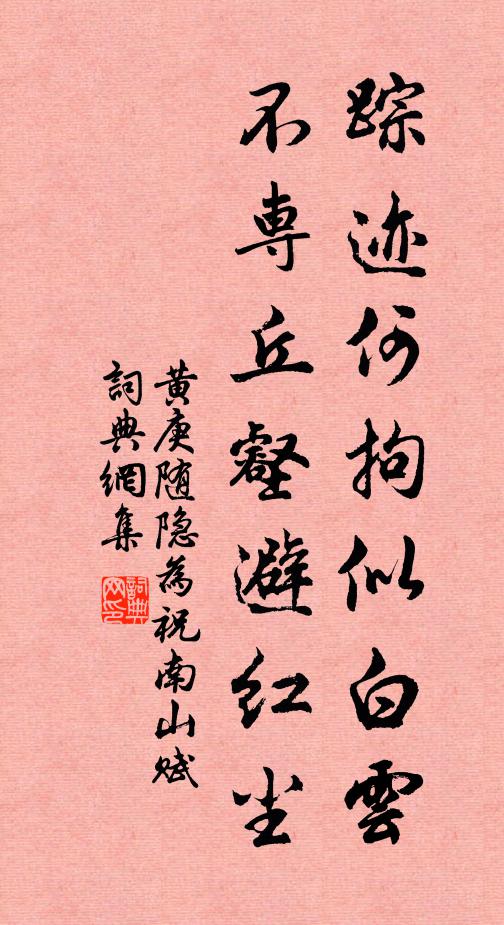 踪迹何拘似白雲
不専丘壑避红尘
黄庚随隐為祝南山赋
詞典網集
詞典网印